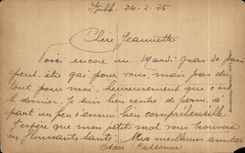 24-2-25
Chère Jeannette
Voici encore un Mardi-Gras de passé
peut-être gai pour vous, mais pas du
tout pour moi, heureusement que c'est
le dernier. Je suis bien rentré de perm. à
part un peu d'ennui bien compréhensible.
J'espère que mon petit mot vous trouvera
en florissante santé. Mes meilleures amitiés
Oscar